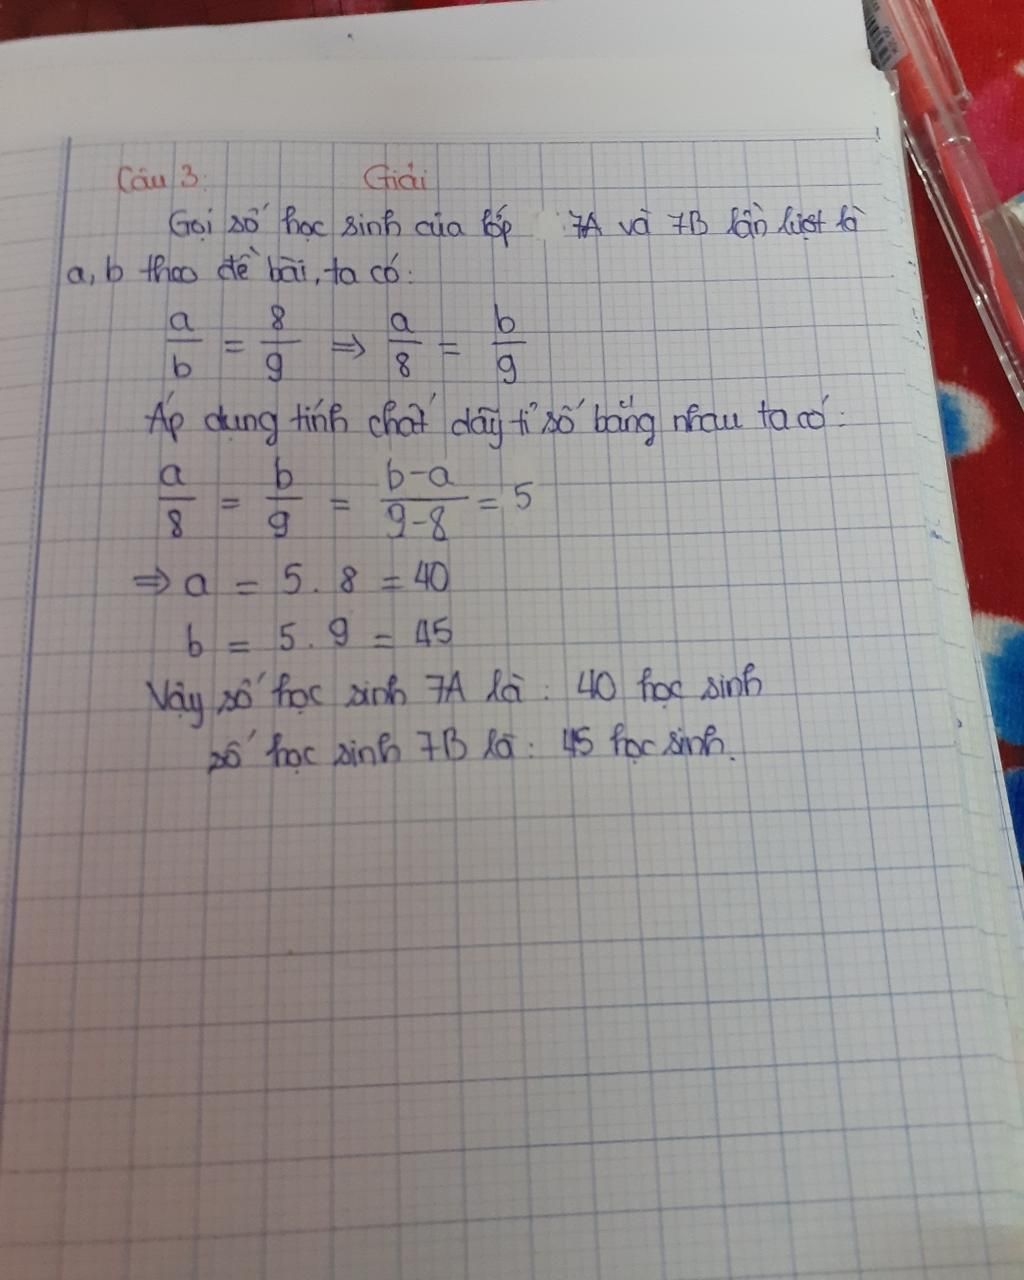 Câu 3: Giải
Gọi số học sinh của lớp 7A và 7B lần lượt là
a, b theo đề bài, ta có:
a/b = 8/9 => a/8 = b/9
Áp dụng tính chất dãy tỉ số bằng nhau ta có:
a/8 = b/9 = b-a/9-8 = 5
=> a = 5.8 = 40
b = 5.9 = 45
Vậy số học sinh 7A là: 40 học sinh
số học sinh 7B là: 45 học sinh.